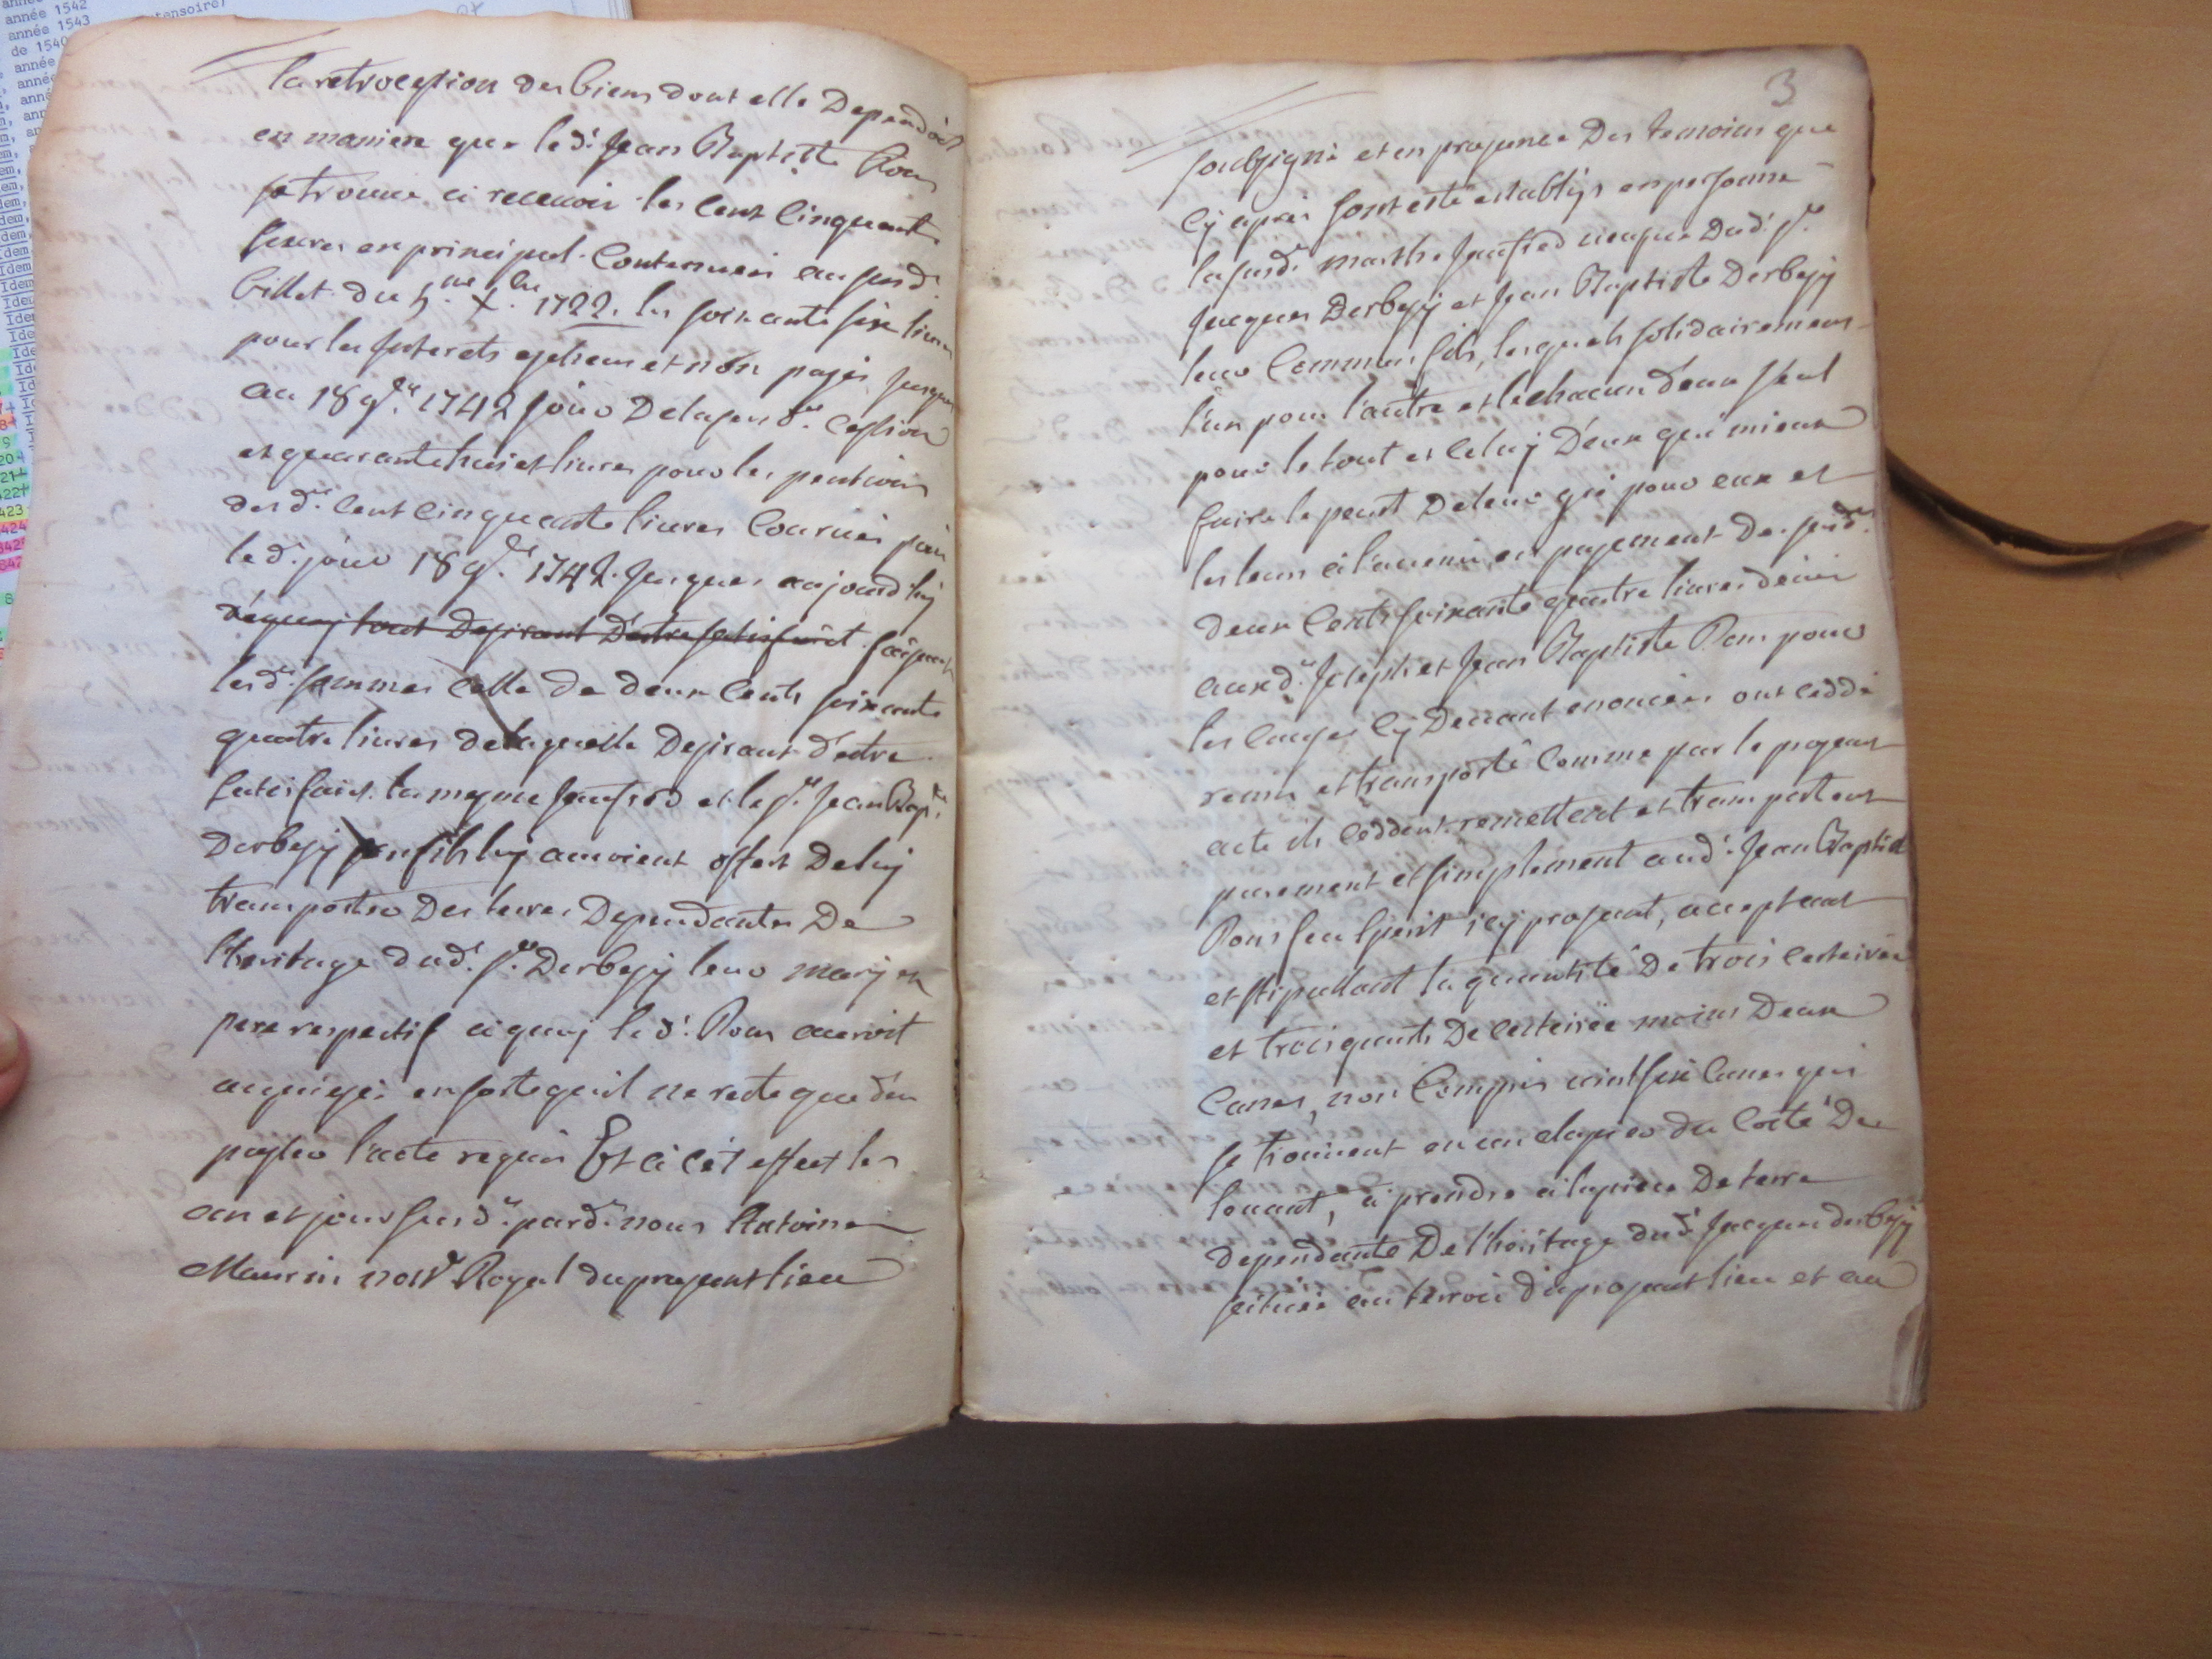 année 1542
année 1543
de 1540
la retrocession des biens dont elle dependoit
en maniere que le dt. Jean Baptiste Rous
se trouve a recevoir les cent cinquante
livres en principal contenues au susdt.
billet du 5me. Xbre. 1722. les soixante six livres
pour les interets echeus et non payés jusques
au 18 9bre. 1742 jour de la susde. cession
et quarante huit livres pour les pentions
desdes. cent cinquante livres courues puis
le dt. jour 18 9bre. 1742. jusques aujourd'huy
dequoy tout desirant d'estre satisfait faisant
lesdes. sommes celle de deux cents soixante
quatre livres de laquelle desirant d'estre
satisfait. la mesme Jaufred et le sr. Jean Bapte.
Derbesy son fils luy auroient offert de luy
transporter des terres dependantes de
l'heritage dudt. sr. Derbesy leur mary et
pere respectif a quoy le dt. Rous auroit
acquiesé, en sorte qu'il ne reste que d'en
passer l'acte requis Et a cet effect les
an et jour susdts. pardt. nous Antoine
Maurin notre Royal du present lieu
3
soubsigné et en presence des temoins que
cy apres sont esté establys en personne
la susde. marthe Jaufred veufve dudt. sr.
Jacques Derbesy et Jean Baptiste Derbesy
leur commun fils, lesquels solidairement
l'un pour l'autre et le chacun d'eux seul
pour le tout et celuy d'eux qui mieux
faire le peut de leur gré pour eux et
les leurs a l'avenir, en payement des susdes.
deux cents soixante quatre livres deües
auxdts. Joseph et Jean Baptiste Rous pour
les causes cy devant enoncées ont ceddé
remis et transporté comme par le present
acte ils ceddent remettent et transportent
purement et simplement audt. Jean Baptiste
Rous seul petit icy present, acceptant
et stipullant la quantité de trois cesteirées
et trois quarts de cesteirée moins deux
canes, non compris vint six canes qui
se trouvent en un clapier du costé du
levant, a prendre a la piece de terre
dependante de l'heritage dudt. Jacques derbesy
scituée au terroir du present lieu et au